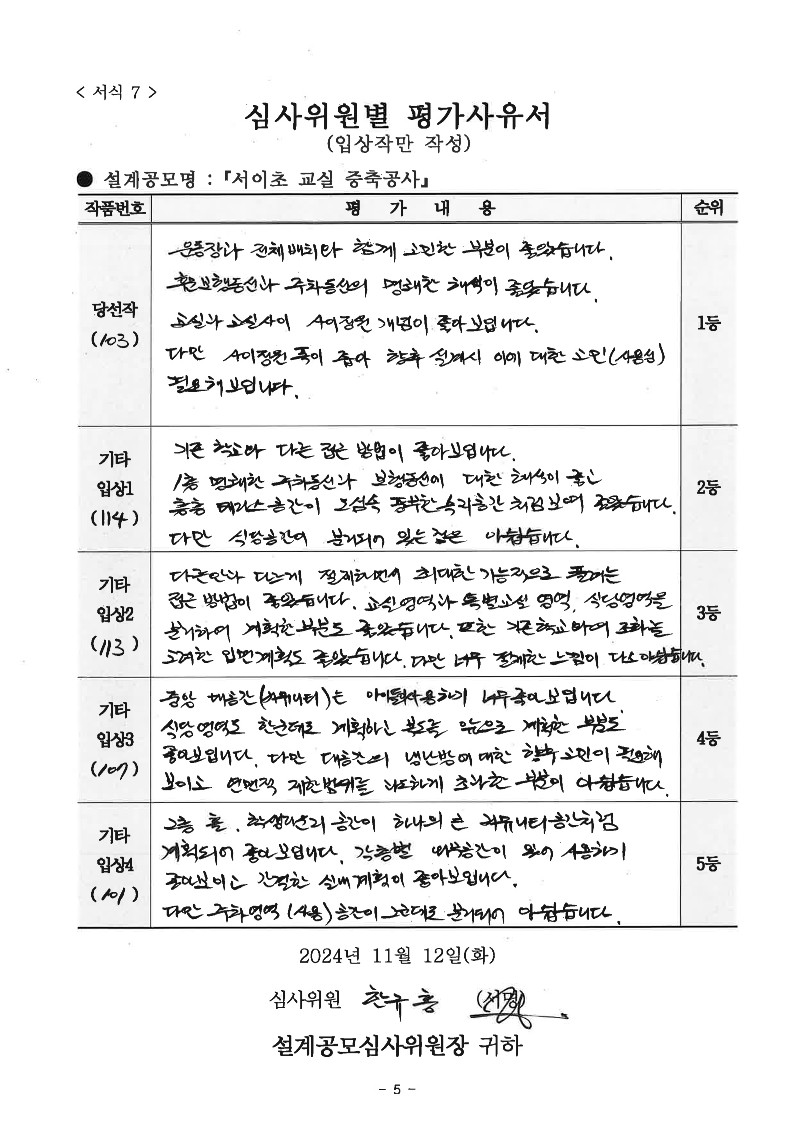 < 서식 7 >
심사위원별 평가사유서
(입상작만 작성)
● 설계공모명 : 『서이초 교실 증축공사』
작품번호 평 가 내 용 순위
당선작
(103)
운동장과 전체배치와 함께 고민한 부분이 좋았습니다.
보행동선과 주차동선의 명쾌한 해석이 좋았습니다.
교실과 교실사이 사이정원 개념이 좋아보입니다.
다만 사이정원 폭이 좁아 향후 설계시 이에 대한 고민(사용성)
필요해보입니다.
1등
기타
입상1
(114)
기존 학교와 다른 접근 방법이 좋아보입니다.
1층 명쾌한 주차동선과 보행동선에 대한 해석이 좋고
층층 테라스공간이 도심속 풍부한 녹지공간처럼 보여 좋았습니다.
다만 식당공간이 분리되어 있는 점은 아쉽습니다.
2등
기타
입상2
(113)
다른안과 다르게 절제하면서 최대한 기능적으로 풀려는
접근 방법이 좋았습니다. 교실영역과 특별교실 영역, 식당영역을
분리하여 계획한 부분도 좋았습니다. 또한 기존학교와의 조화를
고려한 입면계획도 좋았습니다. 다만 너무 절제한 느낌이 다소 아쉽습니다.
3등
기타
입상3
(107)
중앙 대공간(커뮤니티)는 아이들사용하기 너무좋아보입니다.
식당영역도 한군데로 계획하고 복도쪽 계획한 부분도
좋아보입니다. 다만 대공간의 냉난방에대한 향후 고민이 필요해
보이고 연면적 제한범위를 과도하게 초과한 부분이 아쉽습니다.
4등
기타
입상4
(101)
2층 홀, 공간이 하나의 큰 커뮤니티공간처럼
계획되어 좋아보입니다. 각층별 외부공간이 있어 사용하기
좋아보이고 간결한 실내계획이 좋아보입니다.
다만 주차영역 (사용)공간이 그대로 분리되어 아쉽습니다.
5등
2024년 11월 12일(화)
심사위원 한규홍 (서명)
설계공모심사위원장 귀하
- 5 -